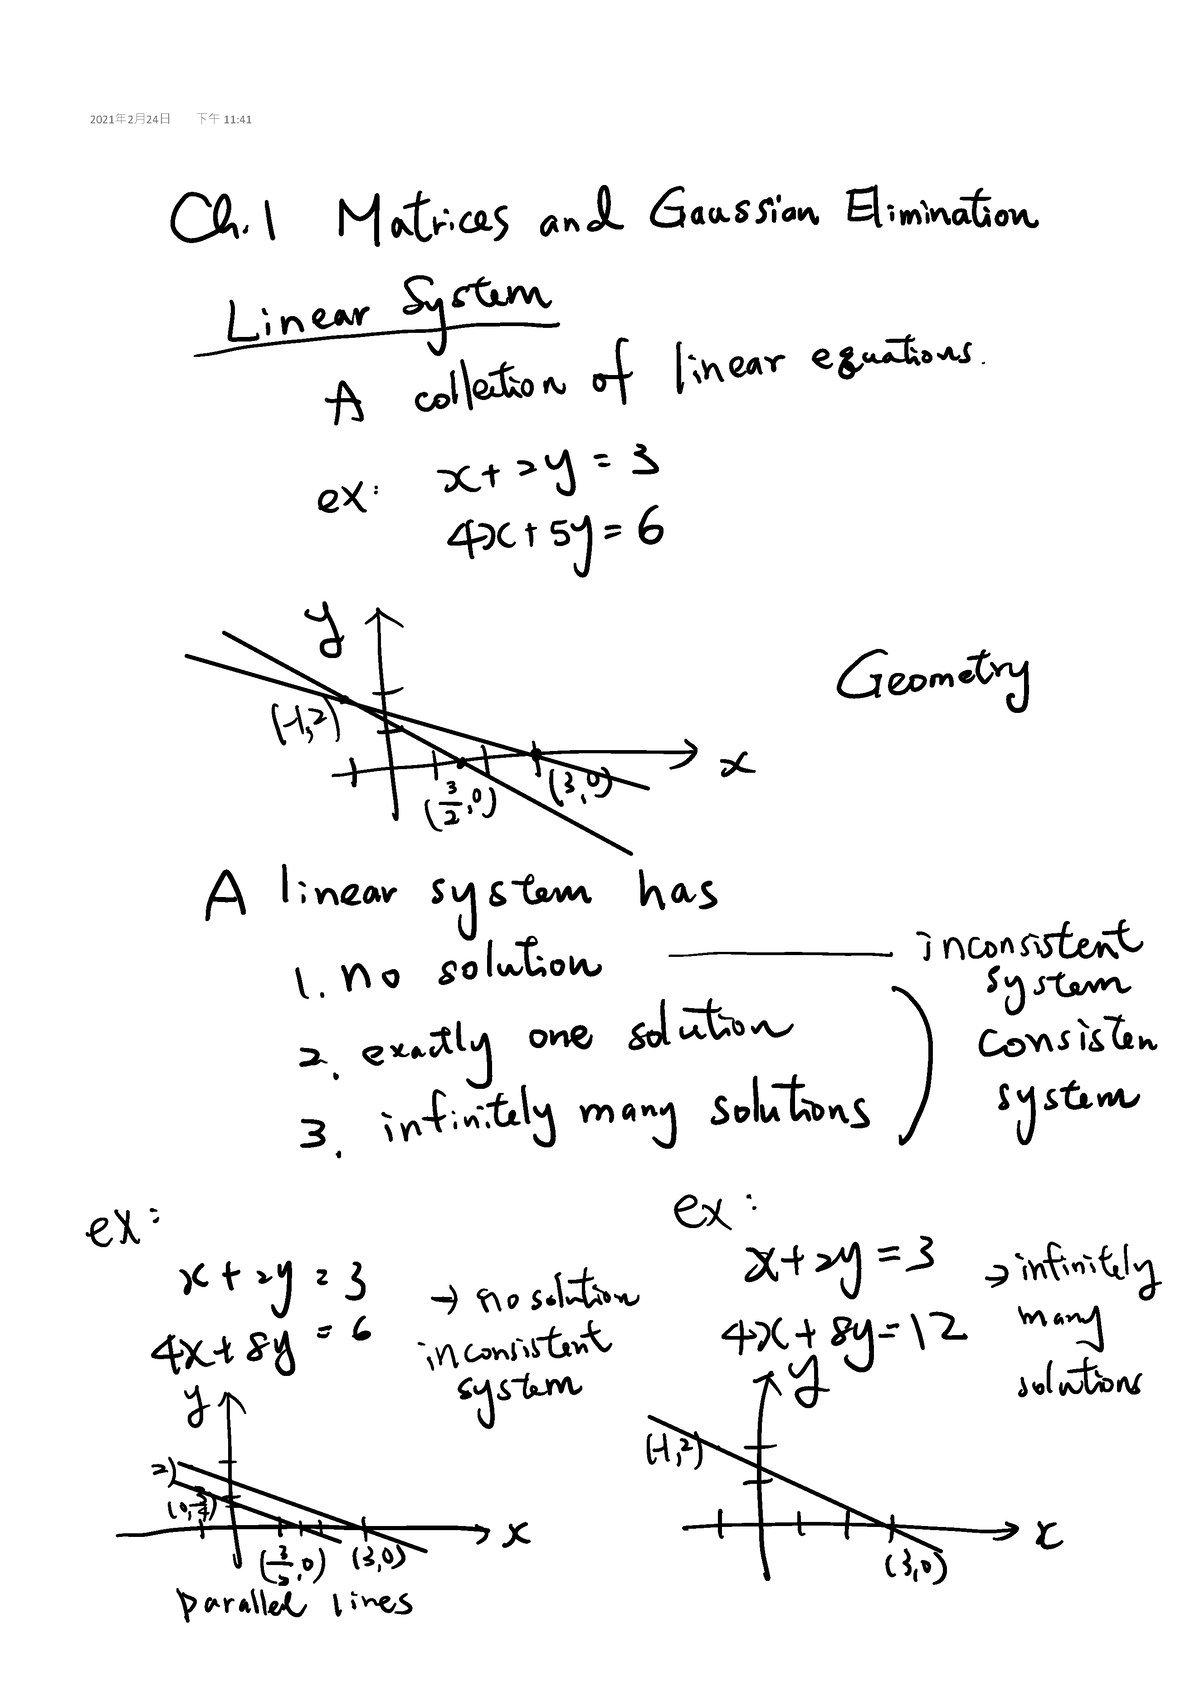 2021年2月24日 下午 11:41
Ch.1 Matrices and Gaussian Elimination
Linear System
A collection of linear equations.
ex: x+2y=3
4x+5y=6
y
Geometry
(-1,2)
x
(3/2,0) (3,0)
A linear system has
1. no solution — inconsistent system
2. exactly one solution
3. infinitely many solutions
consisten system
ex:
x+2y=3
4x+8y=6
→ no solution
inconsistent
system
y
2)
(0,3/4)
x
(3/2,0) (3,0)
parallel lines
ex:
x+2y=3
4x+8y=12
→ infinitely
many
solutions
y
(-1,2)
x
(3,0)